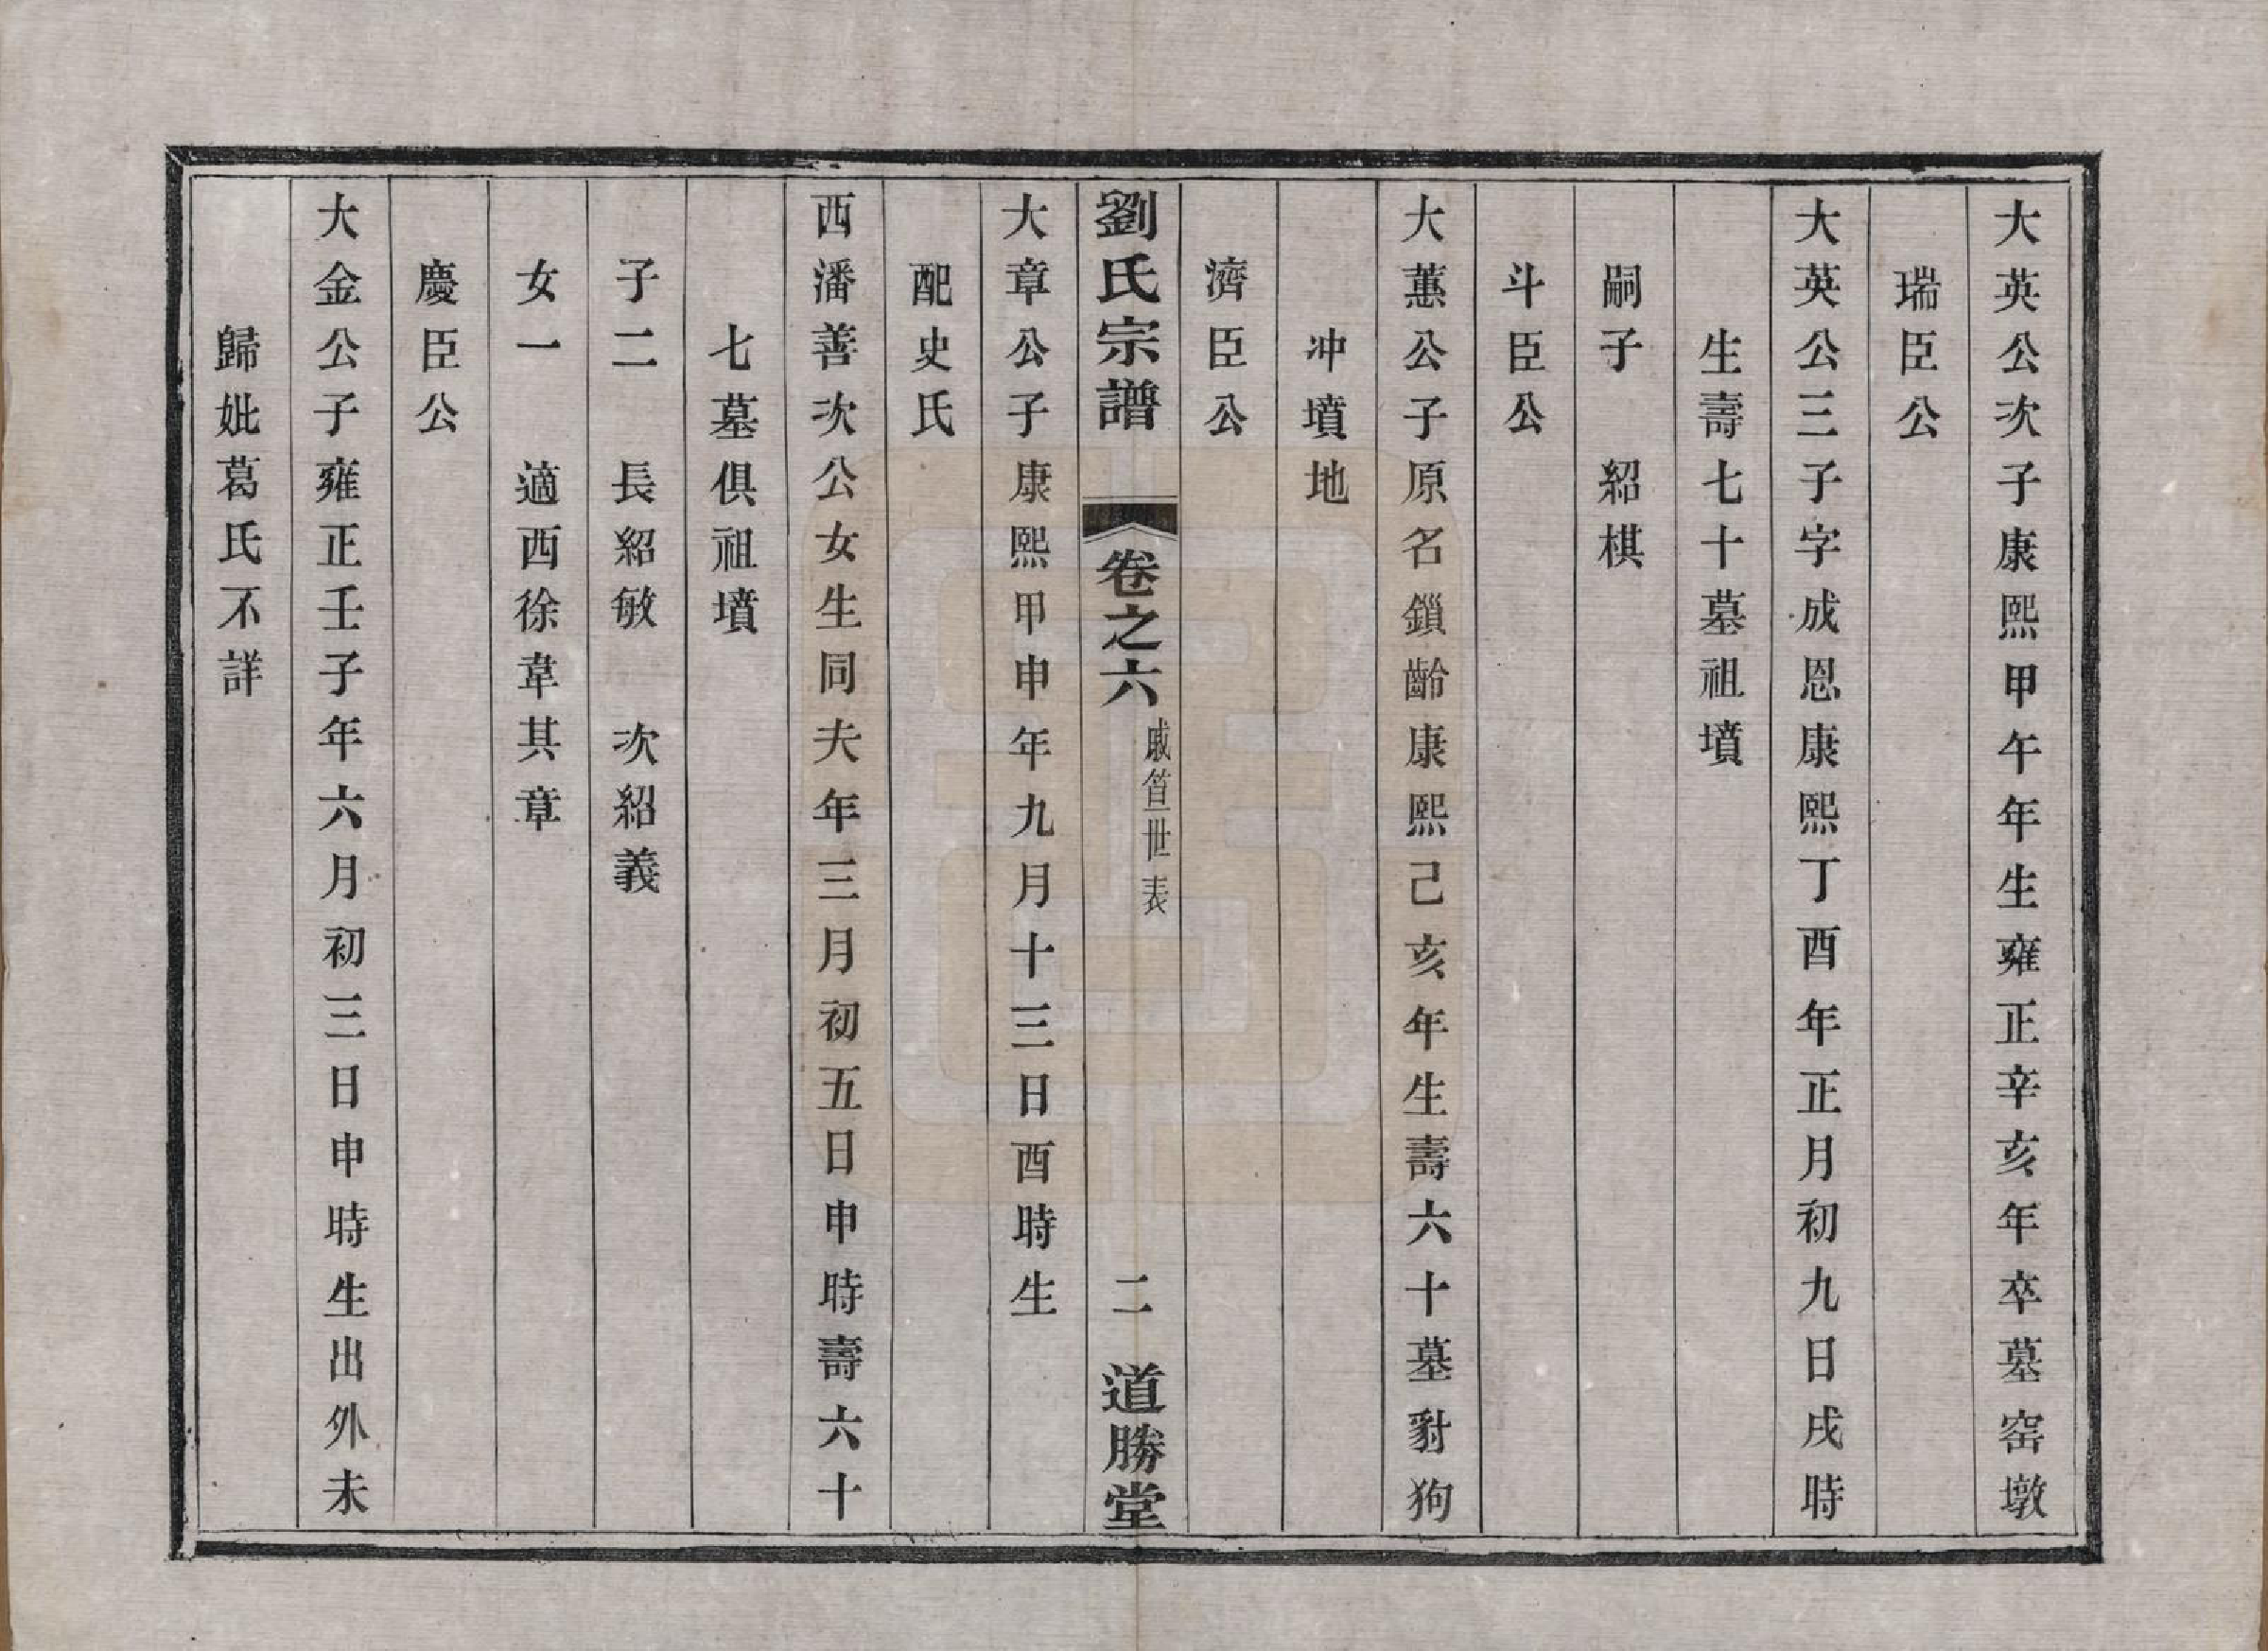 大英公次子康熙甲午年生雍正辛亥年卒墓窑墩
瑞臣公
大英公三子字成恩康熙丁酉年正月初九日戌時
生壽七十墓祖墳
嗣子　紹棋
斗臣公
大蕙公子原名鎖齡康熙己亥年生壽六十墓豺狗
冲墳地
濟臣公
劉氏宗譜　卷之六　世表　二　道勝堂
大章公子康熙甲申年九月十三日酉時生
配史氏
西潘善次公女生同夫年三月初五日申時壽六十
七墓俱祖墳
子二　長紹敏　次紹義
女一　適西徐韋其章
慶臣公
大金公子雍正壬子年六月初三日申時生出外未
歸妣葛氏不詳